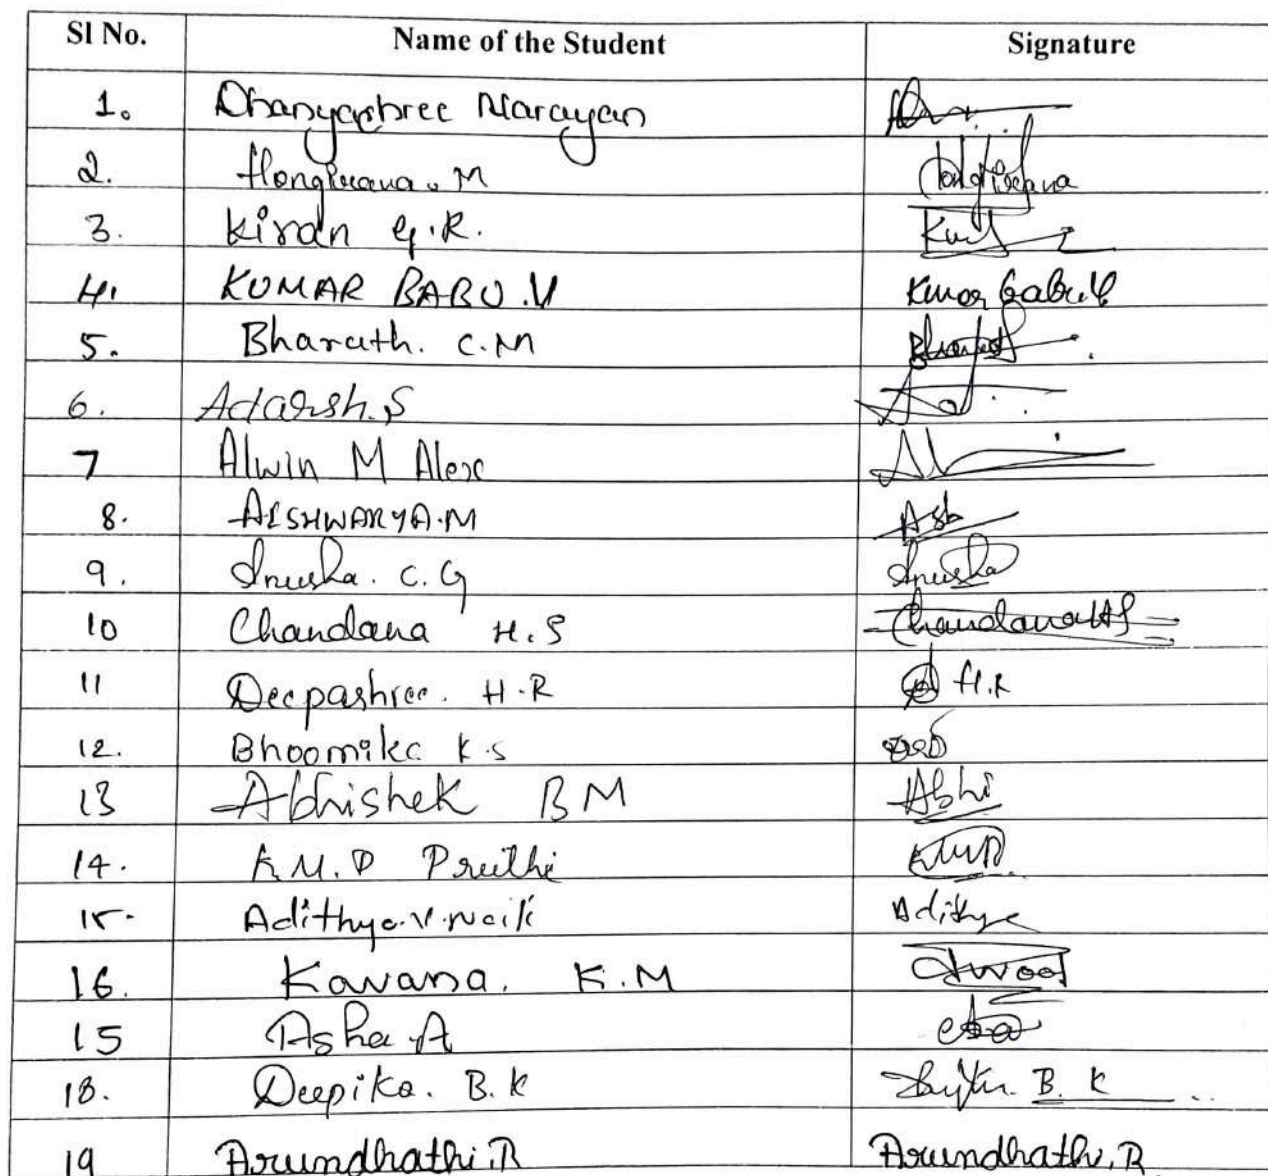 Sl No. Name of the Student Signature
1. Dhanyashree Narayan
2. M
3. Kiran G.R.
4. KUMAR BABU.V Kumar Babu.V
5. Bharath. C.M Bharath
6. Adarsh.S
7 Alwin M Alex
8. AISHWARYA.M Ash
9. Anusha. C.G Anusha
10 Chandana H.S Chandana HS
11 Deepashree. H.R H.R
12. Bhoomika K.S
13 Abhishek BM Abhi
14. K.M.D Preethi KMD
15. Adithya.V.Naik Adithya
16. Kavana. K.M
15 Asha A
18. Deepika. B.K B. K
19 Arundhathi.R Arundhathi.R